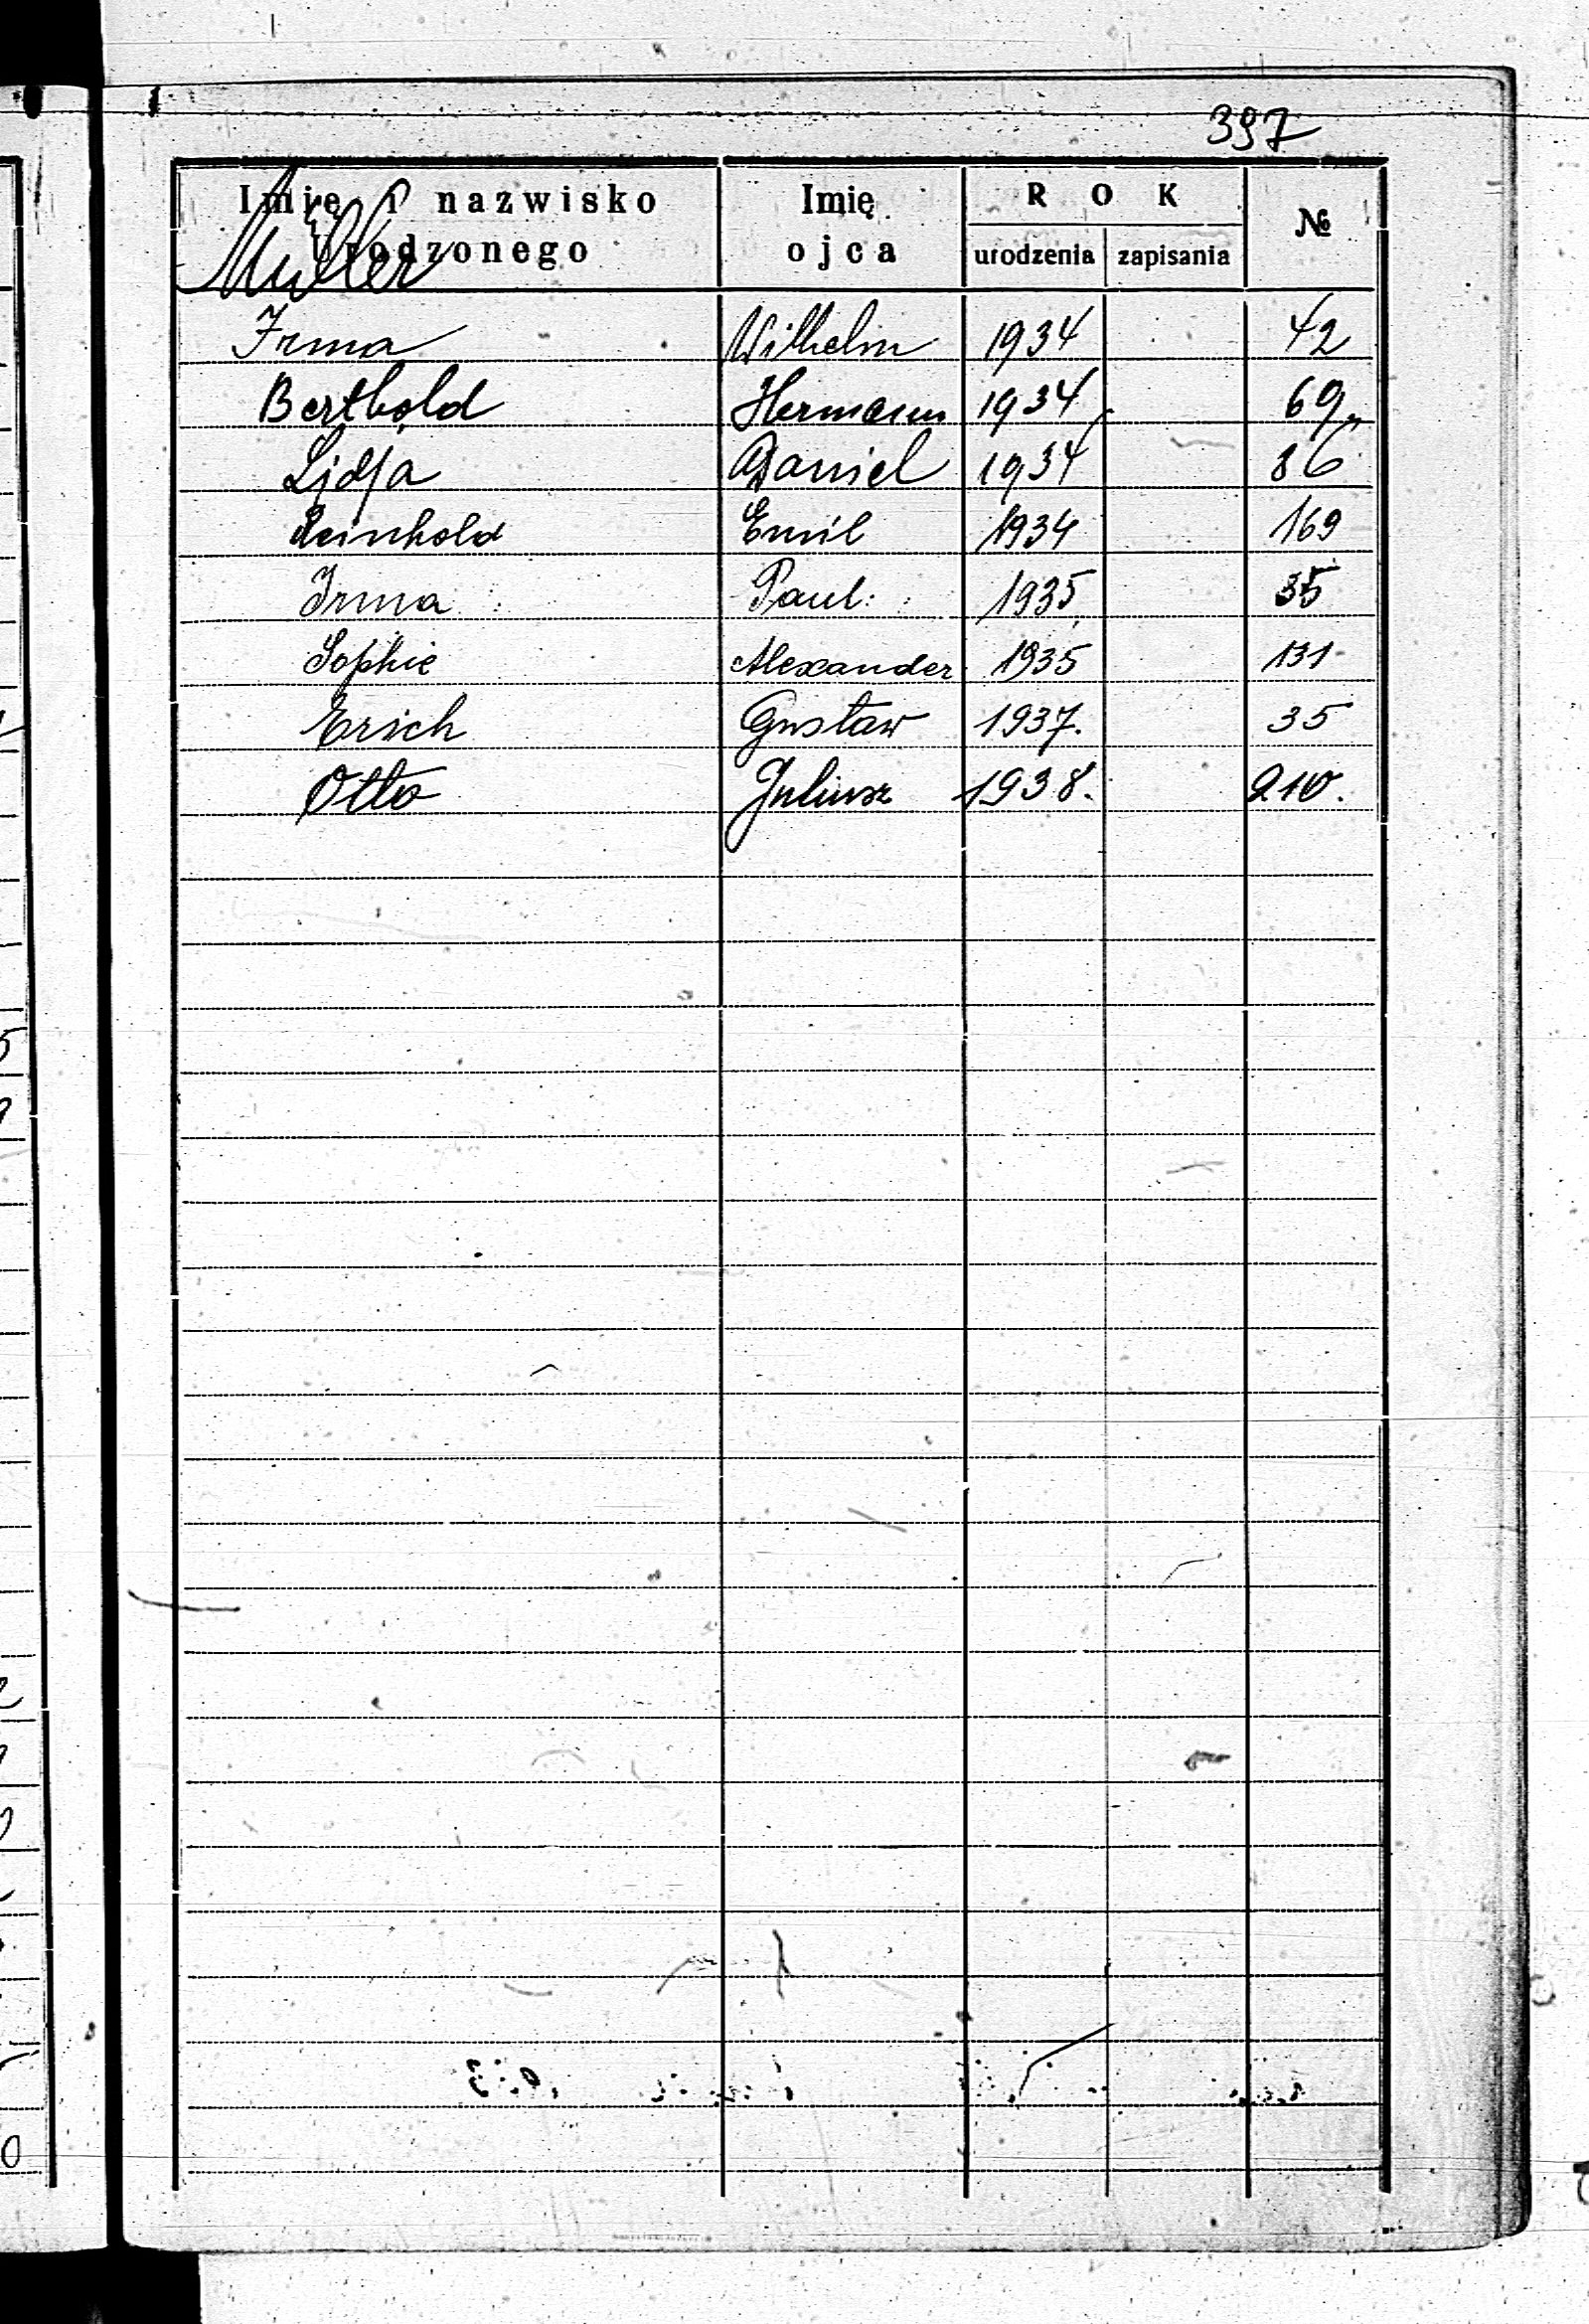 397
Imię i nazwisko urodzonego Imię ojca ROK urodzenia zapisania №
Müller
Irma Wilhelm 1934 42
Berthold Hermann 1934 69.
Lidja Daniel 1934 86
Reinhold Emil 1934 169
Irma Paul 1935 35
Sophie Alexander 1935 131
Erich Gustaw 1937. 35
Otto Juliusz 1938. 210.